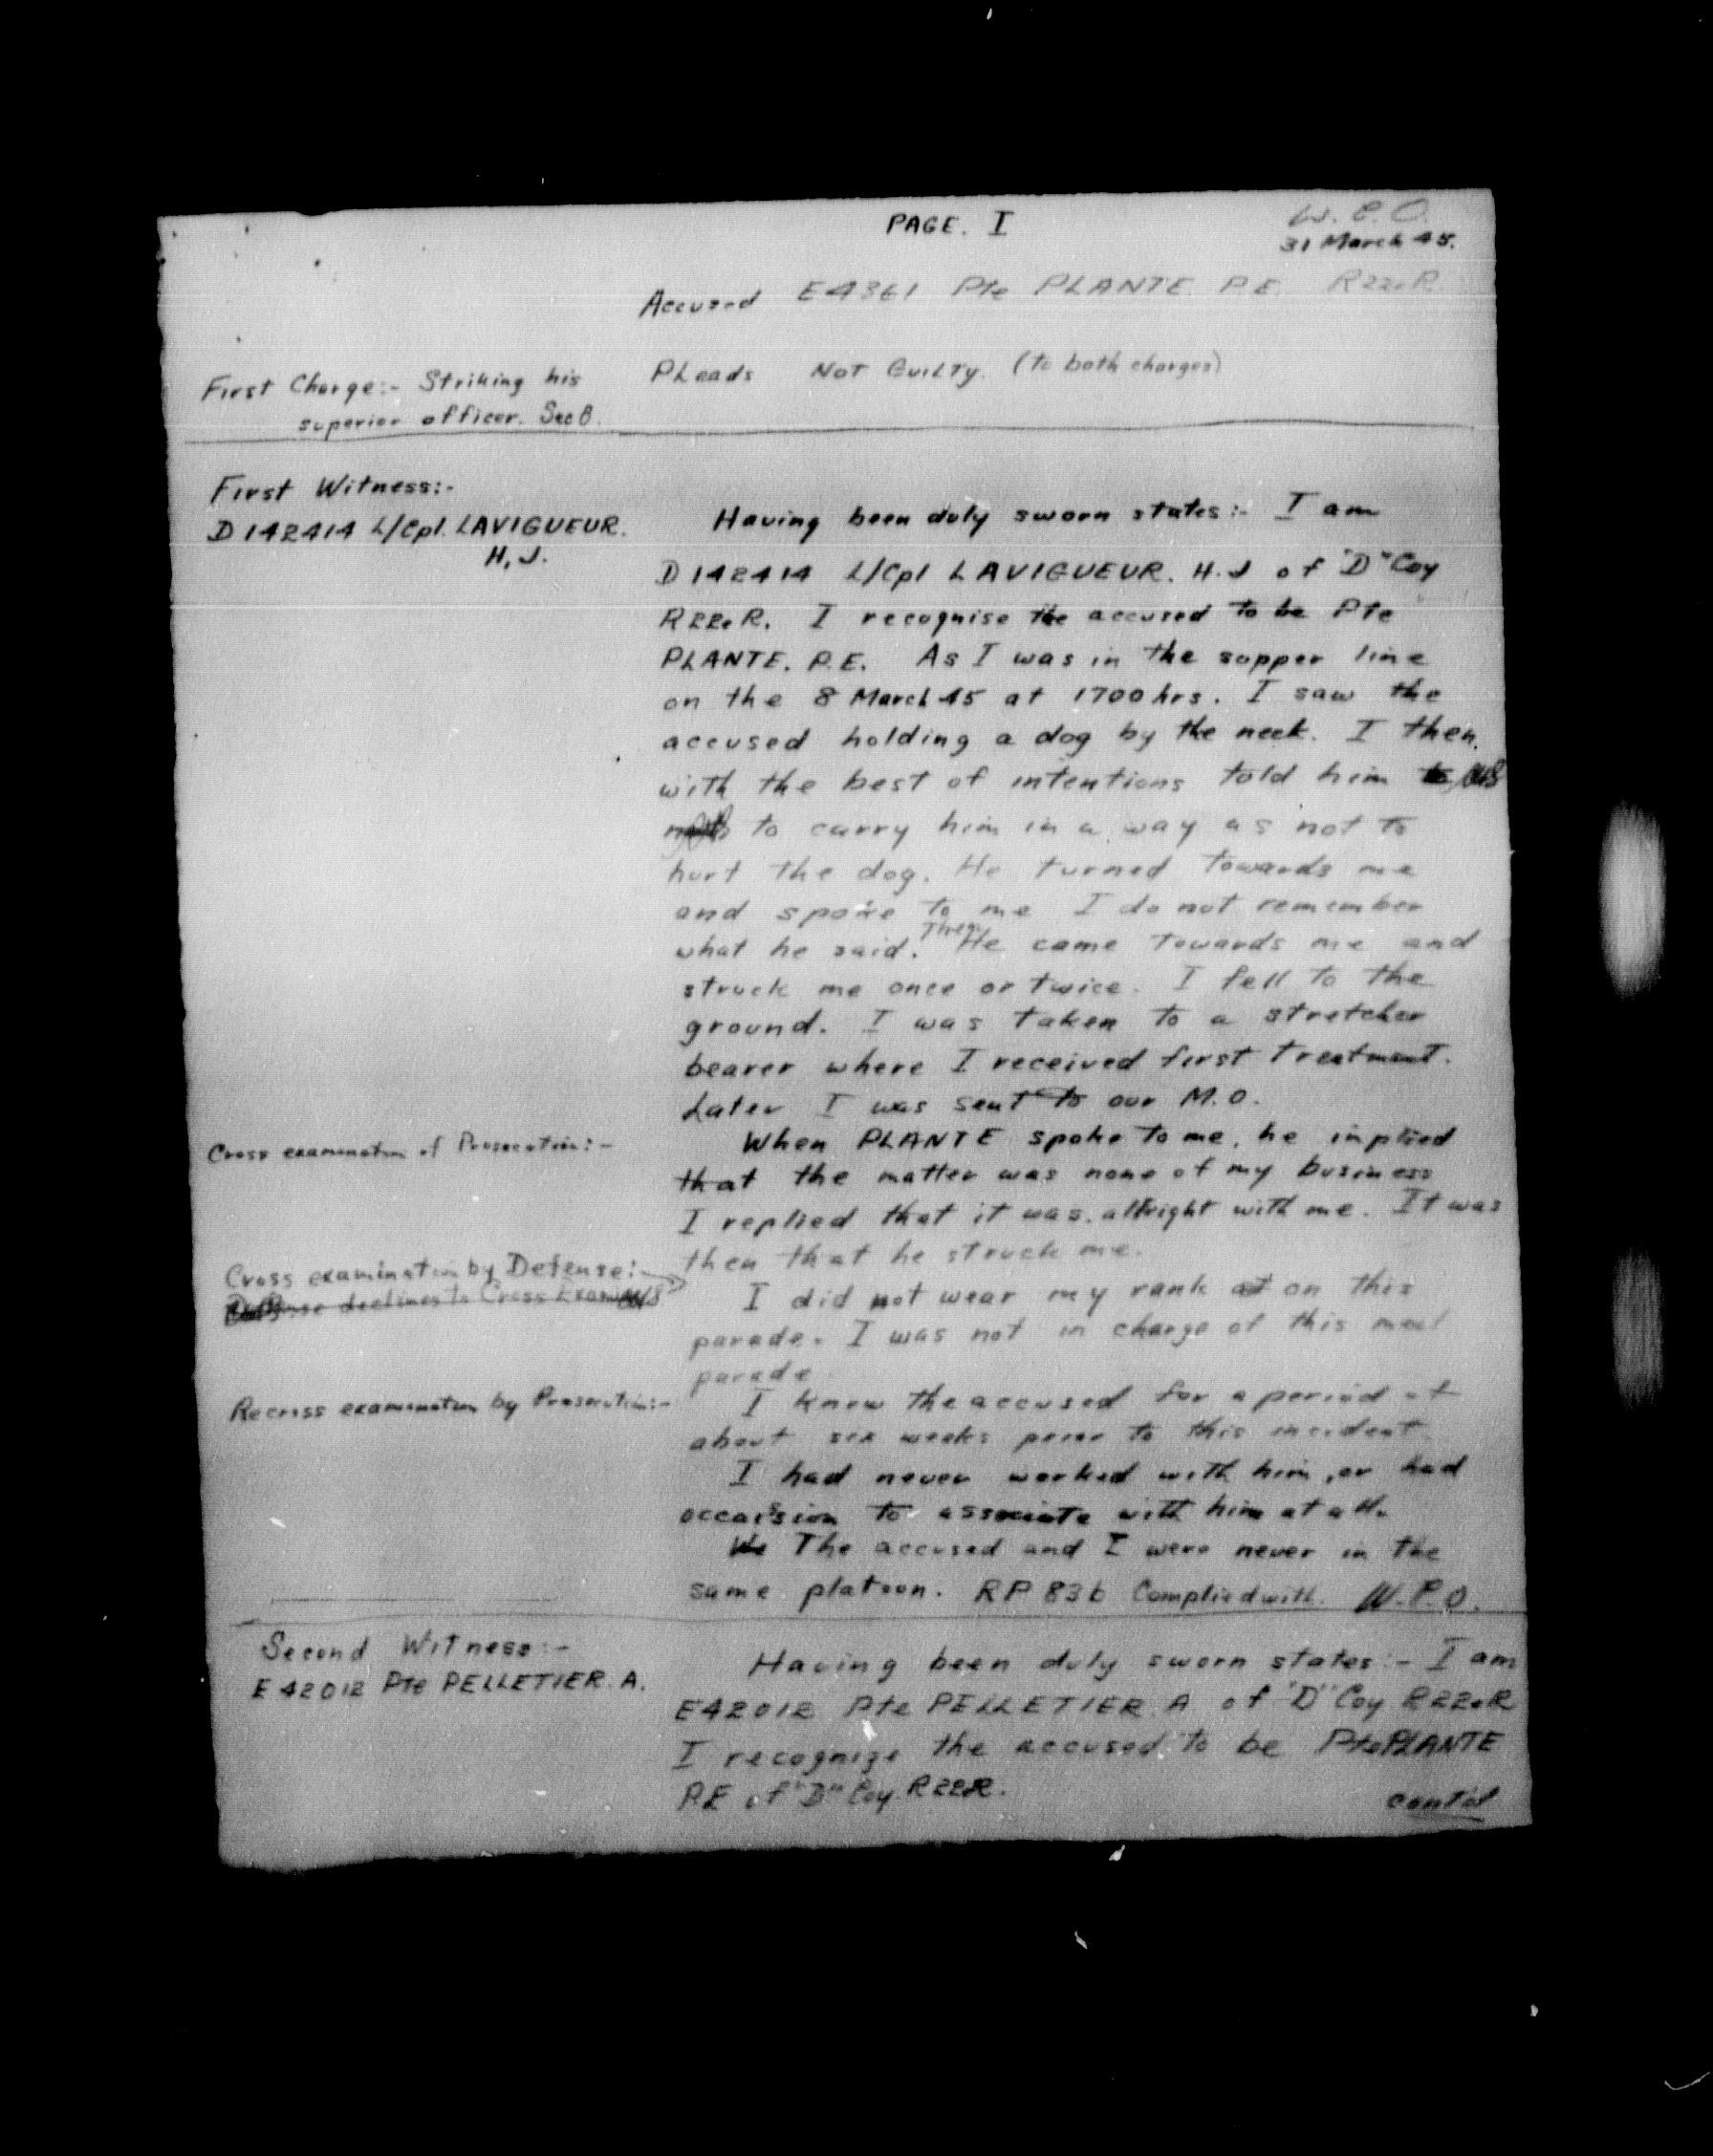 PAGE. I
31 March 45.
Accused E4361 Pte PLANTE. P.E. R22eR
First Charge:- Striking his
superior officer. Sec 8.
PLeads NOT GUILTY. (to both charges)
First Witness:-
D 142414 L/Cpl. LAVIGUEUR.
H, J.
Having been duly sworn states:- I am
D 142414 L/Cpl LAVIGUEUR. H.J of "D" Coy
R22eR. I recognise the accused to be Pte
PLANTE. P.E. As I was in the supper line
on the 8 March 45 at 1700 hrs. I saw the
accused holding a dog by the neck. I then,
with the best of intentions told him to
to carry him in a way as not to
hurt the dog. He turned towards me
and spoke to me I do not remember
what he said. Then He came towards me and
struck me once or twice. I fell to the
ground. I was taken to a stretcher
bearer where I received first treatment.
Later I was sent to our M.O.
Cross examination of Prosecution:-
When PLANTE spoke to me, he implied
that the matter was none of my business
I replied that it was allright with me. It was
then that he struck me.
Cross examination by Defense:-
Defense declines to Cross Exam
I did not wear my rank at on this
parade. I was not in charge of this meal
parade
Recross examination by Prosecution:-
I knew the accused for a period of
about six weeks prior to this incident
I had never worked with him, or had
occasion to associate with him at all.
We The accused and I were never in the
same platoon. RP 83b Complied with. W.P.O.
Second Witness:-
E 42012 Pte PELLETIER. A.
Having been duly sworn states:- I am
E42012 Pte PELLETIER. A of "D" Coy R22eR
I recognize the accused to be Pte PLANTE
P.E of "D" Coy R22eR.
cont'd